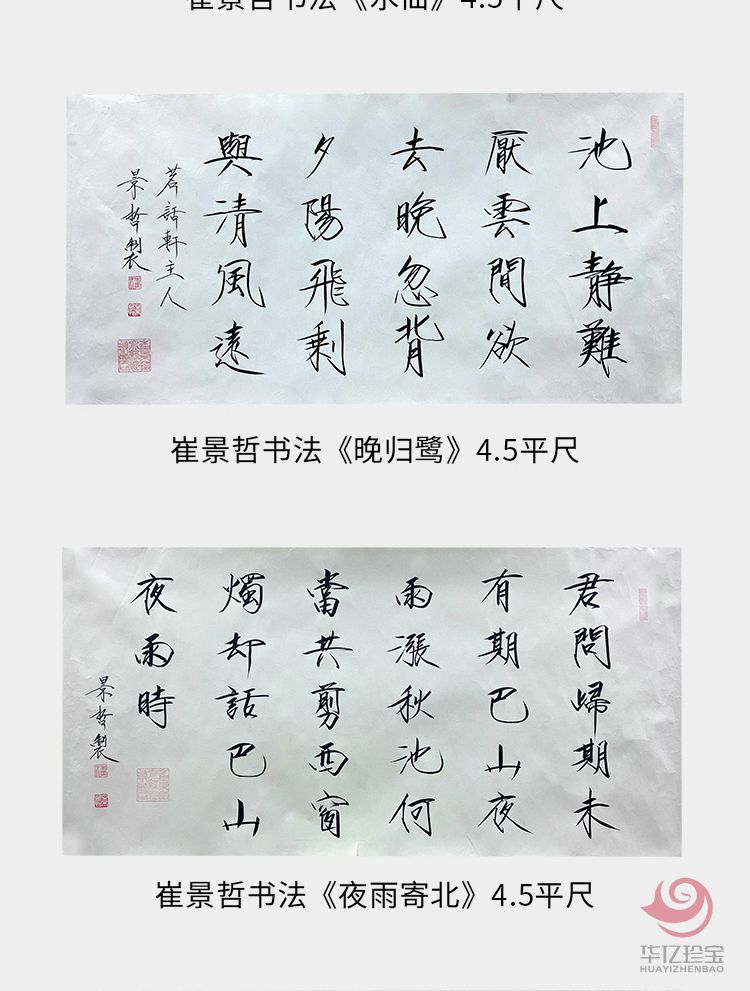 崔景哲书法《水仙》4.5平尺
池上静難
厭雲間欲
去晚忽背
夕陽飛剩
與清風遠
茗話軒主人
景哲製
崔景哲书法《晚归鹭》4.5平尺
君問歸期未
有期巴山夜
雨漲秋池何
當共剪西窗
燭却話巴山
夜雨時
景哲製
崔景哲书法《夜雨寄北》4.5平尺
华亿珍宝
HUAYIZHENBAO